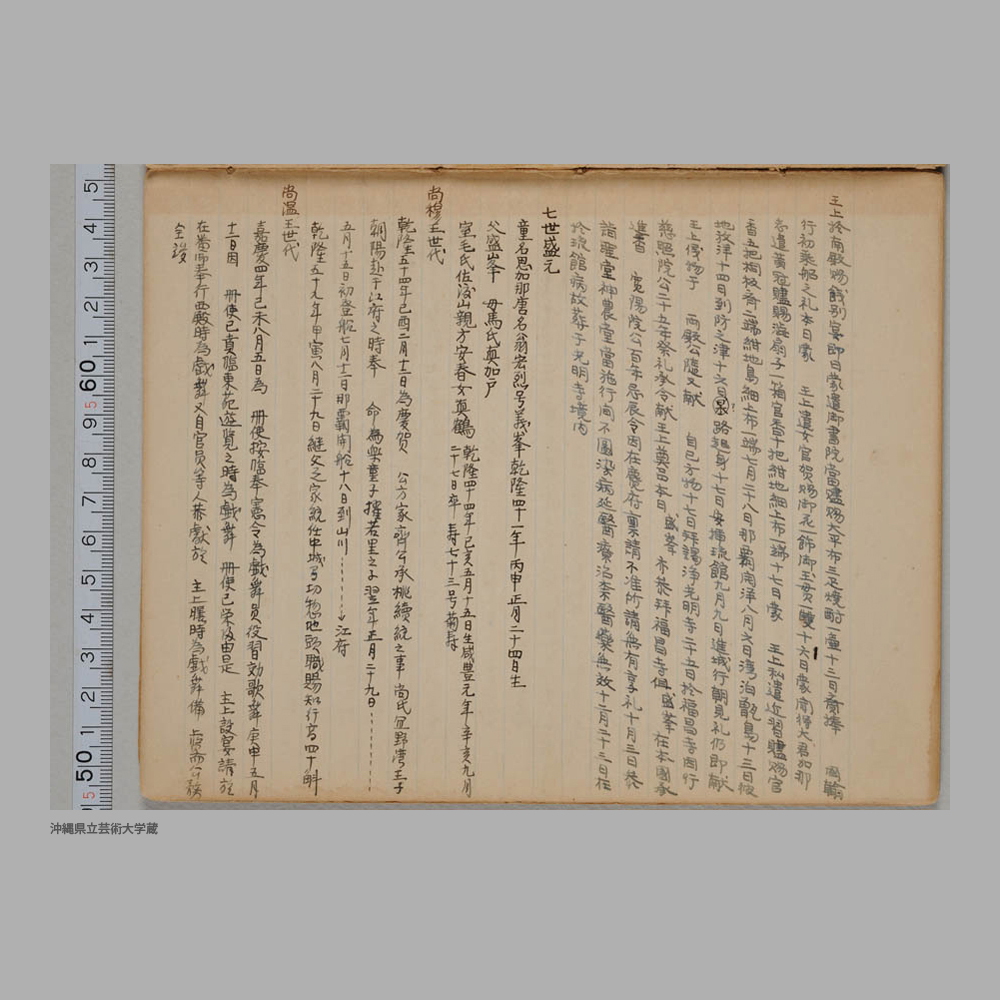 王上於南殿賜餞別宴即日蒙遣御書院當賜太平布三疋焼酎一壷十三日奉捧 國翰
行初乗船之礼本日蒙 王上遣女官賀賜御花一飾御玉貫一雙十六日蒙聞得大君加那
志遣賜海扇子一箱官香十把紺地細上布一端十七日蒙 王上私遣近習賜官
香五把桐板一端紺地島細上布一端七月二十八日那覇開洋八月 日湾泊 島十三日彼
地放洋十四日到防之津十六日 路 十七日安插琉館九月九日進城行朝見礼仍即献
王上 物于 両殿公隨又献 自己方物十七日拜謁浄光明寺二十五日於福昌寺因行
慈照院公二十五年祭礼承令献王上奠品本日盛峯亦恭拜福昌寺但盛峯在本國承
進香 寛陽院公百年忌辰令因在慶府稟請不准所請無有享礼十月三日恭
詣聖堂神農堂當 行 不圖染病延醫療治奈醫藥無效十二月二十三日在
於琉館病故葬于光明寺境内
七世盛元
童名思加那唐名翁宏烈号義峯乾隆四十一年丙申正月二十四日生
父盛峯 母馬氏真加戸
室毛氏佐渡山親方安春女真鶴 乾隆四十四年己亥五月十五日生咸豊元年辛亥九月
二十七日卒 寿七十三号菊寿
尚穆王世代
乾隆五十四年己酉二月十二日為慶賀 公方家齊公承祧續統之事 尚氏宜野湾王子
朝陽赴于江府之時奉 命為楽童子擢若里之子翌年五月二十九日………
五月十五日初登船七月十二日那覇開船十八日到山川………→江府
尚温王世代
乾隆五十九年甲寅八月二十九日継父之家統任中城間切惣地頭職賜知行高四十斛
嘉慶四年己未八月五日為 册使按臨奉憲令為戯舞員役習効歌舞庚申五月
十二日因 册使已賁臨東苑遊覧之時為戯舞 册使已榮 由是 王上設宴請於
在 奉行西殿時為戯舞又自官員等人恭獻於 主上 時為戯舞備 而公務
全竣
沖縄県立芸術大学蔵